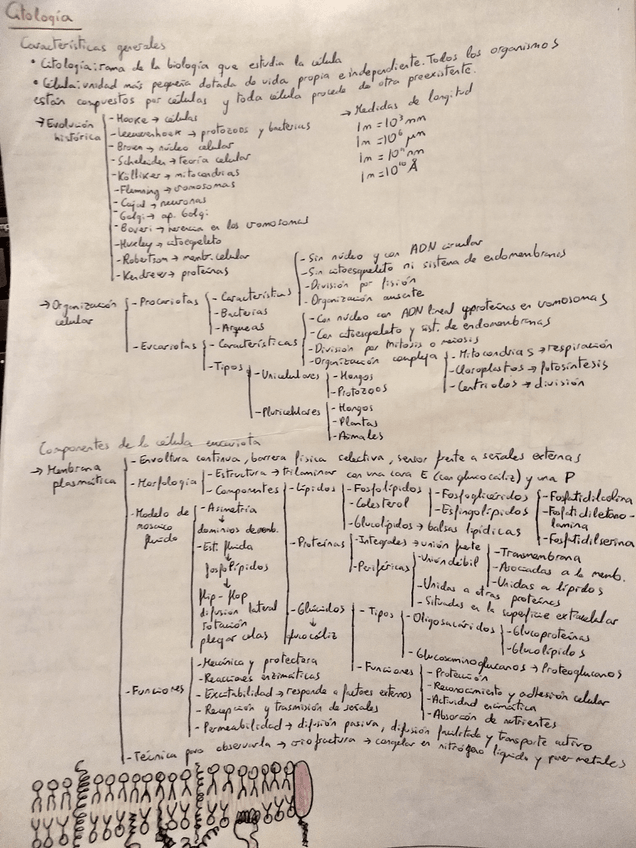 Citología
Características generales
• Citología: rama de la biología que estudia la célula
• Célula: unidad más pequeña dotada de vida propia e independiente. Todos los organismos
están compuestos por células y toda célula procede de otra preexistente.
→ Evolución histórica
- Hooke → células
- Leeuwenhoek → protozoos y bacterias
- Brown → núcleo celular
- Scheleiden → teoría celular
- Kölliker → mitocondrias
- Flemming → cromosomas
- Cajal → neuronas
- Golgi → ap. Golgi
- Boveri → herencia en los cromosomas
- Huxley → citoesqueleto
- Robertson → membr. celular
- Kendrew → proteínas
→ Medidas de longitud
1m = 10³ mm
1m = 10⁶ μm
1m = 10⁹ nm
1m = 10¹⁰ Å
→ Organización celular
- Procariotas
- Características
- Sin núcleo y con ADN circular
- Sin citoesqueleto ni sistema de endomembranas
- División por fisión
- Organización ausente
- Bacterias
- Arqueas
- Eucariotas
- Características
- Con núcleo con ADN lineal y proteínas en cromosomas
- Con citoesqueleto y sist. de endomembranas
- División por mitosis o meiosis
- Organización compleja
- Mitocondrias → respiración
- Cloroplastos → fotosíntesis
- Centriolos → división
- Tipos
- Unicelulares
- Hongos
- Protozoos
- Pluricelulares
- Hongos
- Plantas
- Animales
Componentes de la célula eucariota
→ Membrana plasmática
- Envoltura continua, barrera física selectiva, sensor frente a señales externas
- Morfología
- Estructura → trilaminar con una cara E (con glucocáliz) y una P
- Componentes
- Lípidos
- Fosfolípidos
- Fosfoglicéridos
- Fosfatidilcolina
- Fosfatidiletanolamina
- Fosfatidilserina
- Esfingolípidos
- Colesterol
- Glucolípidos → balsas lipídicas
- Proteínas
- Integrales → unión fuerte
- Periféricas
- Unión débil
- Transmembrana
- Asociadas a la memb.
- Unidas a lípidos
- Unidas a otras proteínas
- Situadas en la superficie extracelular
- Glúcidos
↓
glucocáliz
- Tipos
- Oligosacáridos
- Glucoproteínas
- Glucolípidos
- Glucosaminoglucanos → Proteoglucanos
- Funciones
- Protección
- Reconocimiento y adhesión celular
- Actividad enzimática
- Absorción de nutrientes
- Modelo de mosaico fluido
- Asimetría
↓
dominios de memb.
- Est. fluida
↓
fosfolípidos
↓
flip-flop
difusión lateral
rotación
plegar colas
- Funciones
- Mecánica y protectora
- Reacciones enzimáticas
- Excitabilidad → responde a factores externos
- Recepción y trasmisión de señales
- Permeabilidad → difusión pasiva, difusión facilitada y transporte activo
- Técnica para observarla → criofractura → congelar en nitrógeno líquido y poner metales